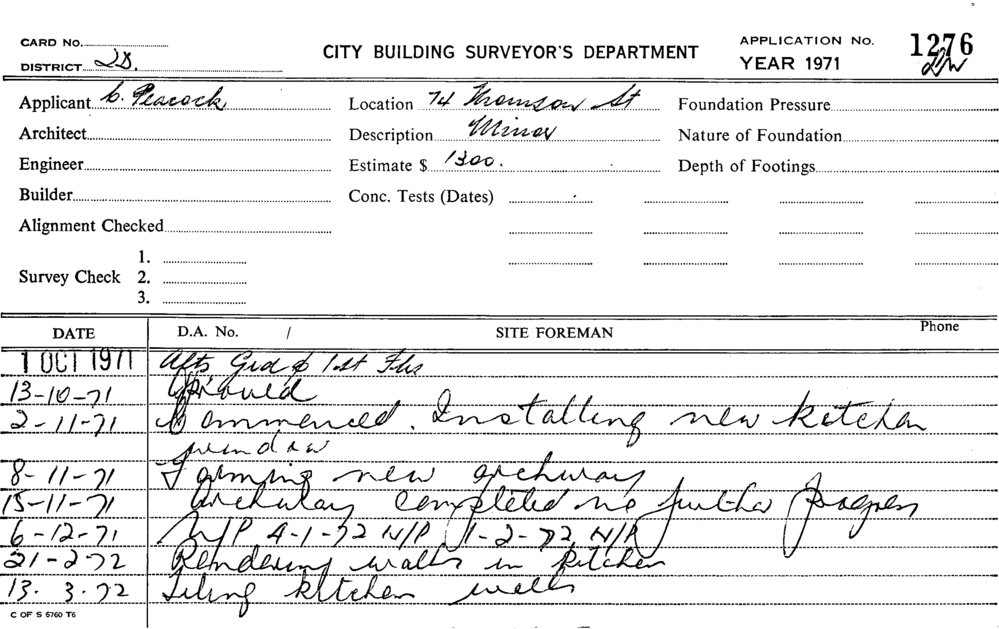 CARD No.
DISTRICT 2D.
CITY BUILDING SURVEYOR'S DEPARTMENT
APPLICATION No. 1276
YEAR 1971
Applicant C. Peacock
Location 74 Thomson St
Foundation Pressure
Architect
Description Minor
Nature of Foundation
Engineer
Estimate $ 1300.
Depth of Footings
Builder
Conc. Tests (Dates)
Alignment Checked
Survey Check
1.
2.
3.
DATE D.A. No. / SITE FOREMAN Phone
1 OCT 1971 Alts Grd & 1st Flrs
13-10-71
2-11-71 Commenced. Installing new kitchen
window
8-11-71 Forming new archway
15-11-71 Archway completed no further progress
6-12-71 N/P 4-1-72 N/P 1-2-72 N/P
21-2-72 Rendering walls in kitchen
13.3.72 Tiling kitchen walls
C OF S 5760 T6